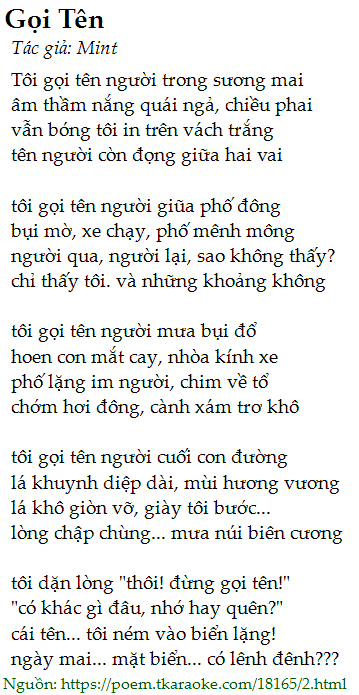 Gọi Tên
Tác giả: Mint
Tôi gọi tên người trong sương mai
âm thầm nắng quái ngả, chiều phai
vẫn bóng tôi in trên vách trắng
tên người còn đọng giữa hai vai
tôi gọi tên người giũa phố đông
bụi mờ, xe chạy, phố mênh mông
người qua, người lại, sao không thấy?
chỉ thấy tôi. và những khoảng không
tôi gọi tên người mưa bụi đổ
hoen con mắt cay, nhòa kính xe
phố lặng im người, chim về tổ
chớm hơi đông, cành xám trơ khô
tôi gọi tên người cuối con đường
lá khuynh diệp dài, mùi hương vương
lá khô giòn vỡ, giày tôi bước...
lòng chập chùng... mưa núi biên cương
tôi dặn lòng "thôi! đừng gọi tên!"
"có khác gì đâu, nhớ hay quên?"
cái tên... tôi ném vào biển lặng!
ngày mai... mặt biển... có lênh đênh???
Nguồn: https://poem.tkaraoke.com/18165/2.html